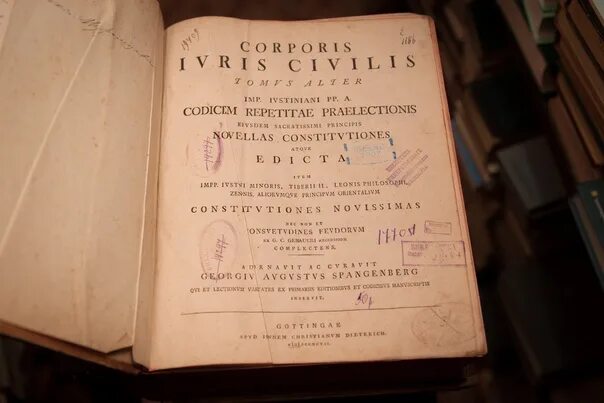 CORPORIS
IVRIS CIVILIS
TOMVS ALTER
IMP. IVSTINIANI PP. A.
CODICEM REPETITAE PRAELECTIONIS
EIVSDEM SACRATISSIMI PRINCIPIS
NOVELLAS CONSTITVTIONES
ATQVE
EDICTA
ITEM
IMPP. IVSTINI MINORIS, TIBERII II. LEONIS PHILOSOPHI,
ZENNIS, ALIORVMQVE PRINCIPVM ORIENTALIVM
CONSTITVTIONES NOVISSIMAS
NEC NON ET
CONSVETVDINES FEVDORVM
EX G. C. GEBAVERI RECENSIONE
COMPLECTENS,
ADORNAVIT AC CVRAVIT
GEORGIVS AVGVSTVS SPANGENBERG
QVI ET LECTIONVM VARIETATES EX PRIMARIIS EDITIONIBVS ET CODICIBVS MANVSCRIPTIS
INSERVIT.
GOTTINGAE
APVD IOANNEM CHRISTIANVM DIETERICH.